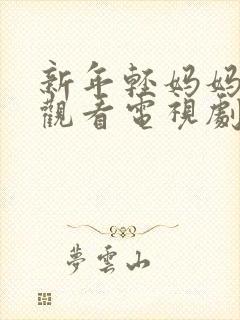 新年輕媽媽
觀看電視劇
夢雲山